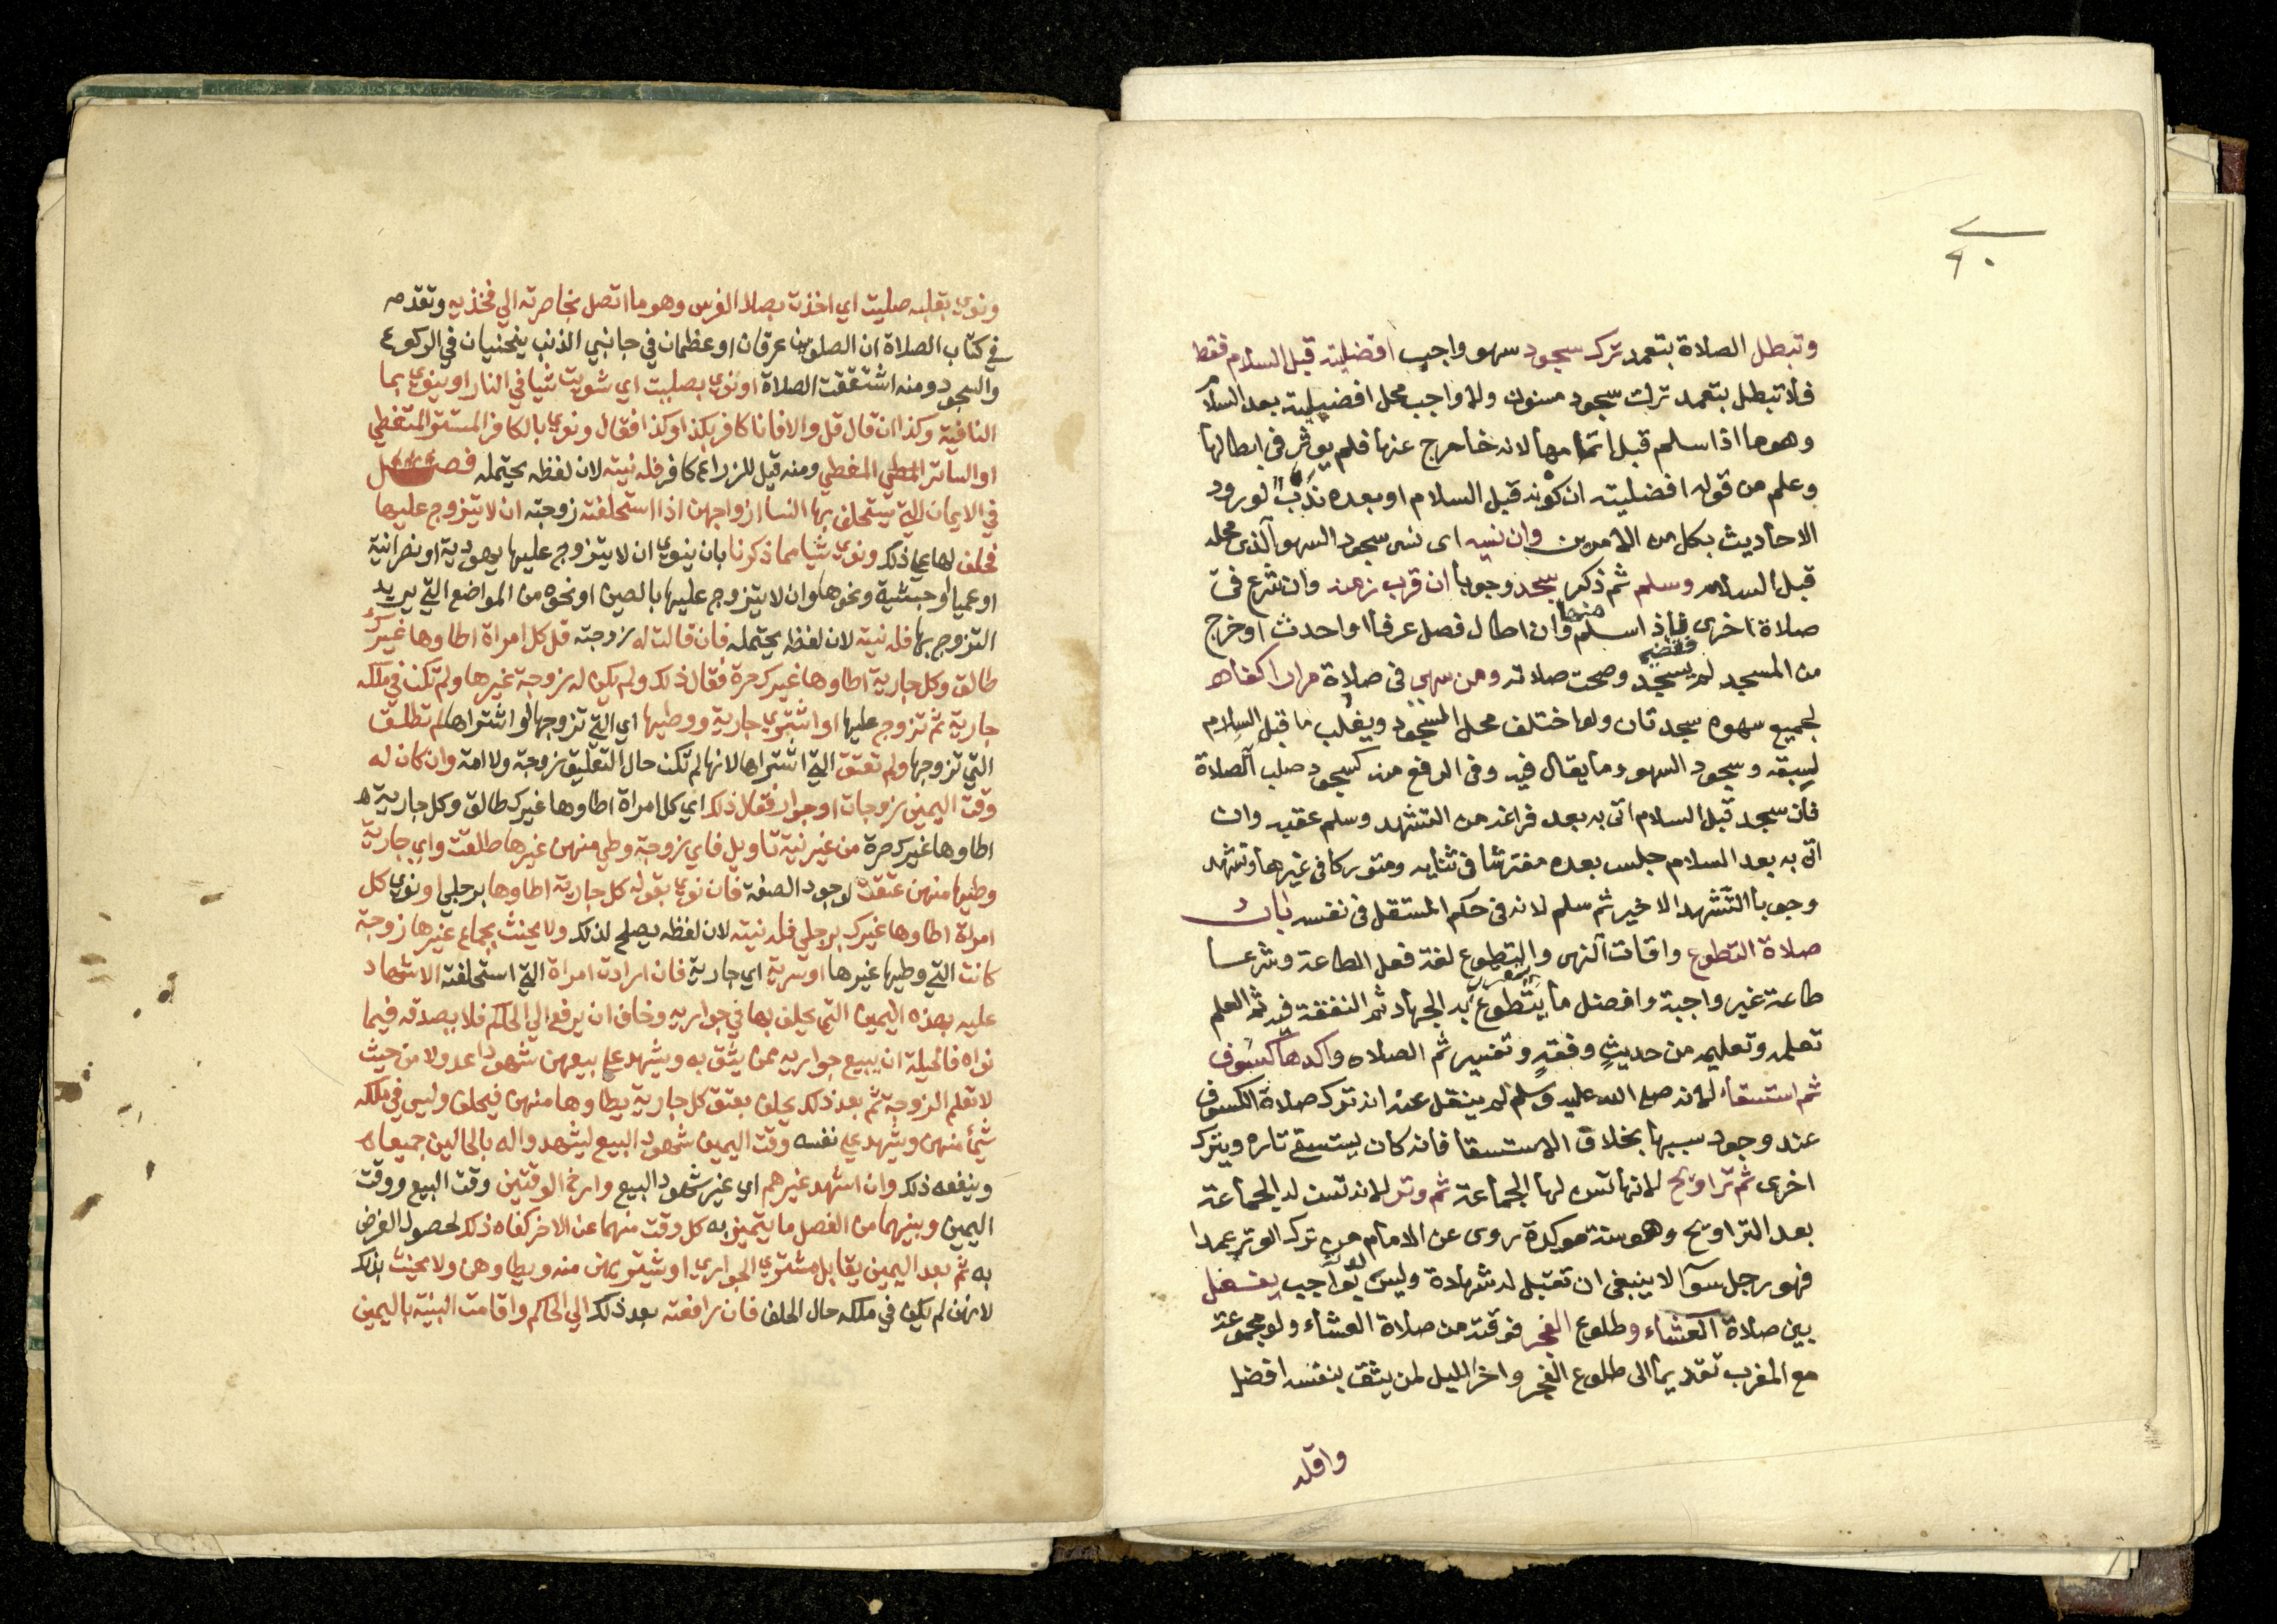 ٩٠
وتبطل الصلاة بتعمد ترك سجود سهو واجب افضليته قبل السلام فقط
فلا تبطل بتعمد ترك سجود مسنون ولا واجب محل افضليته بعد السلام
وهو ما اذا سلم قبل اتمامها لانه خارج عنها فلم يوثر في ابطالها
وعلم من قوله افضليته ان كونه قبل السلام او بعده ندب لورود
الاحاديث بكل من الامرين وان نسيه اى نسى سجود السهو الذى محله
قبل السلام وسلم ثم ذكر سجد وجوبا ان قرب زمنه وان شرع فى
صلاة اخرى فاذا سلم منها وان طال فصل عرفا او احدث او خرج
من المسجد لم يسجد وصحت صلاته ومن سهى فى صلاة مرارا كفاه
لجميع سهوه سجدتان ولو اختلف محل السجود ويغلب ما قبل السلام
لسبقه وسجود السهو وما يقال فيه وفى الرفع منه كسجود صلب الصلاة
فان سجد قبل السلام اتى به بعد فراغه من التشهد وسلم عقبه وان
اتى به بعد السلام جلس بعده مفترشا فى ثنايه ومتوركا فى غيرها وتشهد
وجوبا التشهد الاخير ثم سلم لانه فى حكم المستقل فى نفسه باب
صلاة التطوع واوقات النهى والتطوع لغة فعل الطاعة وشرعا
طاعة غير واجبة وافضل ما يتطوع به الجهاد ثم النفقة فيه ثم العلم
تعلمه وتعليمه من حديث وفقه وتفسير ثم الصلاه واكدها كسوف
ثم استسقاء لانه صلى الله عليه وسلم لم ينقل عنه انه ترك صلاة الكسوف
عند وجود سببها بخلاف الاستسقا فانه كان يستسقى تاره ويترك
اخرى ثم تراويح لانها تسن لها الجماعة ثم وتر لانه تسن له الجماعة
بعد التراويح وهو سنة موكدة روى عن الامام من ترك الوتر عمدا
فهو رجل سوآ لا ينبغى ان تقبل له شهادة وليس بواجب يفعل
بين صلاة العشاء وطلوع الفجر فوقته من صلاة العشاء ولو مجموعة
مع المغرب تقديما الى طلوع الفجر واخر الليل لمن يثق بنفسه افضل
واقله
ونوى بقلبه صليت اي اخذت بصلا الفرس وهو ما اتصل بخاصرته الي فخذيه وتقدم
في كتاب الصلاة ان الصلوين عرقان او عظمان في جانبي الذنب ينحنيان في الركوع
والسجود ومنه اشتقت الصلاة او نوى بصليت اي شويت شيا في النار او ينوى بما
النافية وكذا ان قال قل والا فانا كافر بكذا وكذا فقال ونوى بالكافر المستتر المتغطي
او الساتر المغطي ومنه قيل للزراع كافر فله نيته لان لفظه يحتمله فصل
في الايمان التي يستحلف بها النسا ازواجهن اذا استحلفته زوجته ان لا يتزوج عليها
فحلف لها على ذلك ونوى شيا مما ذكرنا بان ينوى ان لا يتزوج عليها يهودية او نصرانية
او عميا او حبشية ونحوها وان لا يتزوج عليها بالصين او نحوه من المواضع التي يريد
التزوج بها فله نيته لان لفظه يحتمله فان قالت له زوجته قل كل امراة اطاوها غيرك
طالق وكل جارية اطاوها غيرك حرة فقال ذلك ولم يكن له زوجة غيرها ولم تكن في ملكه
جارية ثم تزوج عليها او اشترى جارية ووطيها اي التي تزوجها او اشتراها لم تطلق
التي تزوجها ولم تعتق التي اشتراها لانها لم تكن حال التعليق زوجة ولا امة وان كان له
وقت اليمين زوجات او جوار فقال ذلك اي كل امراة اطاوها غيرك طالق وكل جارية
اطاوها غيرك حرة من غير نية تاويل فاي زوجة وطي منهن غيرها طلقت واي جارية
وطيها منهن عتقت لوجود الصفة فان نوى بقوله كل جارية اطاوها برجلي او نوى كل
امراة اطاوها غيرك برجلي فله نيته لان لفظه يصلح لذلك ولا يحنث بجماع غيرها زوجة
كانت التي وطيها غيرها او سرية اي جارية فان ارادت امراة التي استحلفته الاشهاد
عليه بهذه اليمين التي يحلف بها في جواريه وخاف ان يرفع الي الحاكم فلا يصدقه فيما
نواه فالحيلة ان يبيع جواريه ممن يثق به ويشهد على بيعهن شهودا عدولا من حيث
لا تعلم الزوجة ثم بعد ذلك يحلف بعتق كل جارية يطاوها منهن فيحلف وليس في ملكه
شيأ منهن ويشهد على نفسه وقت اليمين شهود البيع ليشهدوا له بالحالين جميعا
وينفعه ذلك وان اشهد غيرهم اي غير شهود البيع وارخ الوقتين وقت البيع ووقت
اليمين وبينهما من الفصل ما يتميز به كل وقت منهما عن الاخر كفاه ذلك لحصول الغرض
به ثم بعد اليمين يقابل مشتري الجواري او يشتريهن منه ويطاوهن ولا يحنث بذلك
لانهن لم يكن في ملكه حال الحلف فان رافعته بعد ذلك الي الحاكم واقامت البينة باليمين